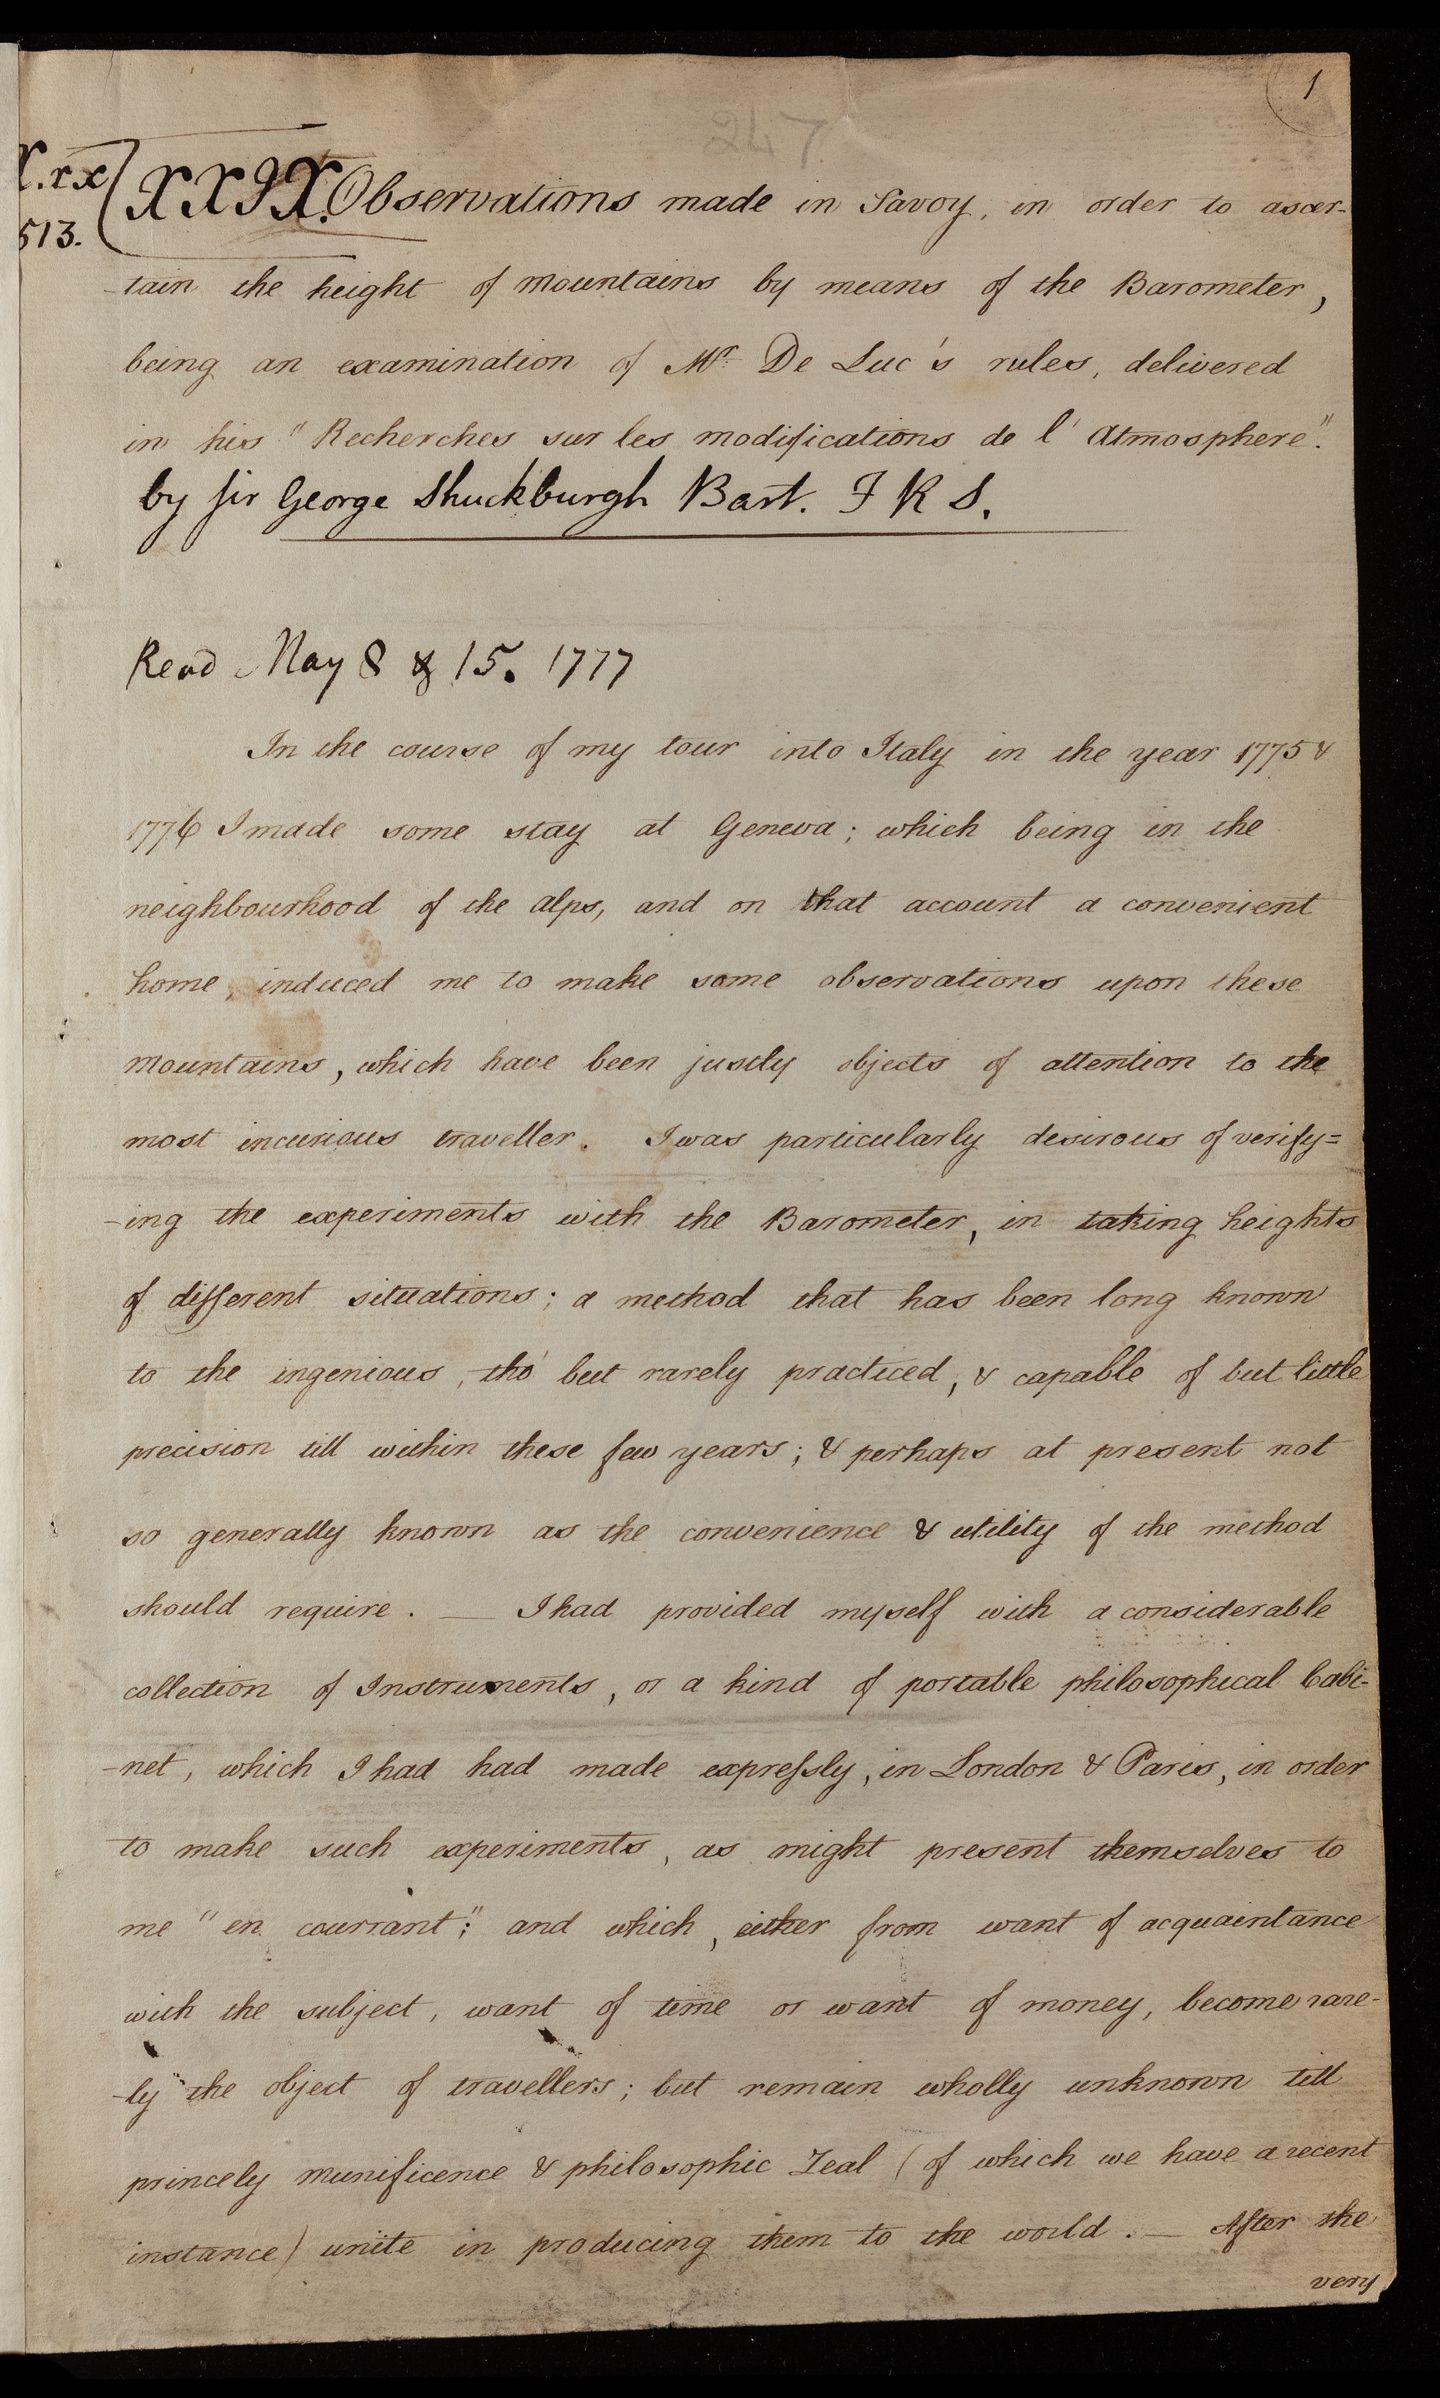 1
247
X.rx
513.
XXIX. Observations made in Savoy, in order to ascer-
-tain the height of Mountains by means of the Barometer,
being an examination of Mr. De Luc's rules, delivered
in his "Recherches sur les modifications de l'Atmosphere".
by Sir George Shuckburgh Bart. F R S.
Read May 8 & 15. 1777
In the course of my tour into Italy in the year 1775 &
1776 I made some stay at Geneva; which being in the
neighbourhood of the Alps, and on that account a convenient
home, induced me to make some observations upon these
Mountains, which have been justly objects of attention to the
most incurious traveller. I was particularly desirous of verify=
-ing the experiments with the Barometer, in taking heights
of different situations; a method that has been long known
to the ingenious, tho' but rarely practiced, & capable of but little
precision till within these few years; & perhaps at present not
so generally known as the convenience & utility of the method
should require. — I had provided myself with a considerable
collection of Instruments, or a kind of portable philosophical Cabi-
-net, which I had had made expressly, in London & Paris, in order
to make such experiments, as might present themselves to
me "en courrant"; and which, either from want of acquaintance
with the subject, want of time or want of money, become rare-
-ly the object of travellers; but remain wholly unknown till
princely munificence & philosophic Zeal (of which we have a recent
instance) unite in producing them to the world. — After the
very